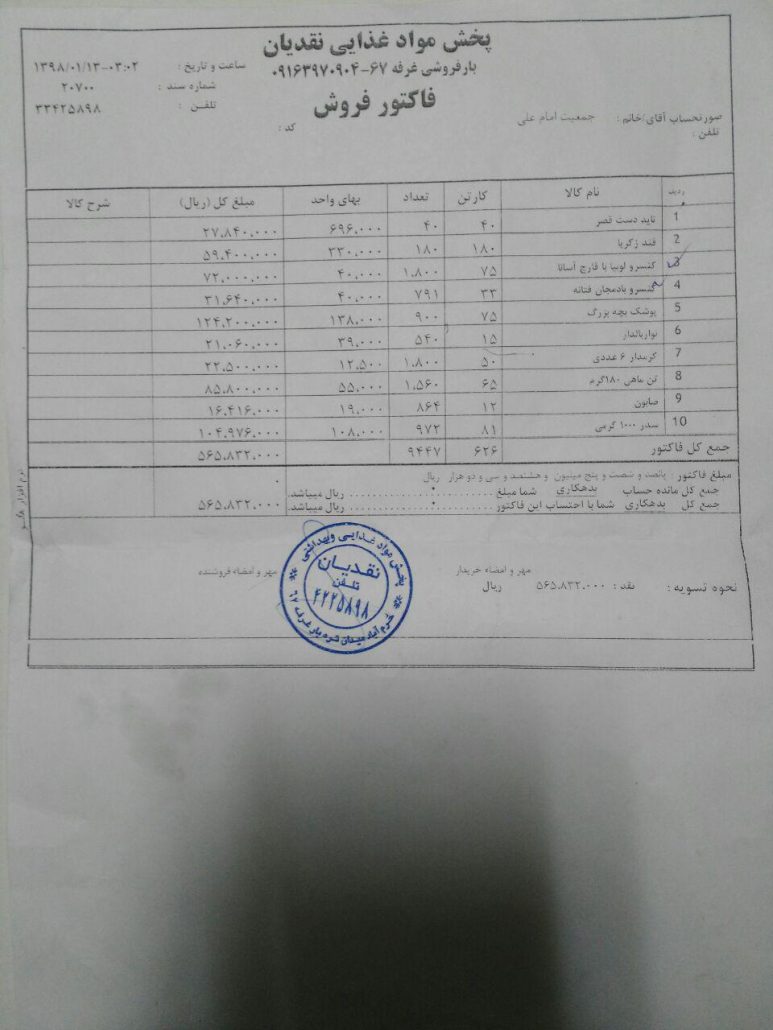 پخش مواد غذایی نقدیان
بارفروشی غرفه ۶۷-۰۹۱۶۳۹۷۰۹۰۴
ساعت و تاریخ : ۱۳۹۸/۰۱/۱۳-۰۳:۰۲
شماره سند : ۲۰۷۰۰
فاکتور فروش
تلفن : ۳۳۴۲۵۸۹۸
صورتحساب آقای/خانم : جمعیت امام علی
کد :
تلفن :
ردیف نام کالا کارتن تعداد بهای واحد مبلغ کل (ریال) شرح کالا
1 تاید دست قصر ۴۰ ۴۰ ۶۹۶،۰۰۰ ۲۷،۸۴۰،۰۰۰
2 قند زکریا ۱۸۰ ۱۸۰ ۳۳۰،۰۰۰ ۵۹،۴۰۰،۰۰۰
3 کنسرو لوبیا با قارچ آسانا ۷۵ ۱،۸۰۰ ۴۰،۰۰۰ ۷۲،۰۰۰،۰۰۰
4 کنسرو بادمجان فتانه ۳۳ ۷۹۱ ۴۰،۰۰۰ ۳۱،۶۴۰،۰۰۰
5 پوشک بچه بزرگ ۷۵ ۹۰۰ ۱۳۸،۰۰۰ ۱۲۴،۲۰۰،۰۰۰
6 نواربالدار ۱۵ ۵۴۰ ۳۹،۰۰۰ ۲۱،۰۶۰،۰۰۰
7 کرمدار ۶ عددی ۵۰ ۱،۸۰۰ ۱۲،۵۰۰ ۲۲،۵۰۰،۰۰۰
8 تن ماهی ۱۸۰گرم ۶۵ ۱،۵۶۰ ۵۵،۰۰۰ ۸۵،۸۰۰،۰۰۰
9 صابون ۱۲ ۸۶۴ ۱۹،۰۰۰ ۱۶،۴۱۶،۰۰۰
10 سدر ۱۰۰۰ گرمی ۸۱ ۹۷۲ ۱۰۸،۰۰۰ ۱۰۴،۹۷۶،۰۰۰
جمع کل فاکتور ۶۲۶ ۹۴۴۷ ۵۶۵،۸۳۲،۰۰۰
مبلغ فاکتور : پانصد و شصت و پنج میلیون و هشتصد و سی و دو هزار ریال
جمع کل مانده حساب بدهکاری شما مبلغ ........ ۰ ........ ریال میباشد. ۰
جمع کل بدهکاری شما با احتساب این فاکتور ........ ۰ ........ ریال میباشد. ۵۶۵،۸۳۲،۰۰۰
نرم افزار هلو
مهر و امضاء خریدار
مهر و امضاء فروشنده
نحوه تسویه : نقد : ۵۶۵،۸۳۲،۰۰۰ ریال
پخش مواد غذایی وبهداشتی
نقدیان
تلفن
۴۲۲۵۸۹۸
خرم آباد میدان تره بار غرفه ۶۷